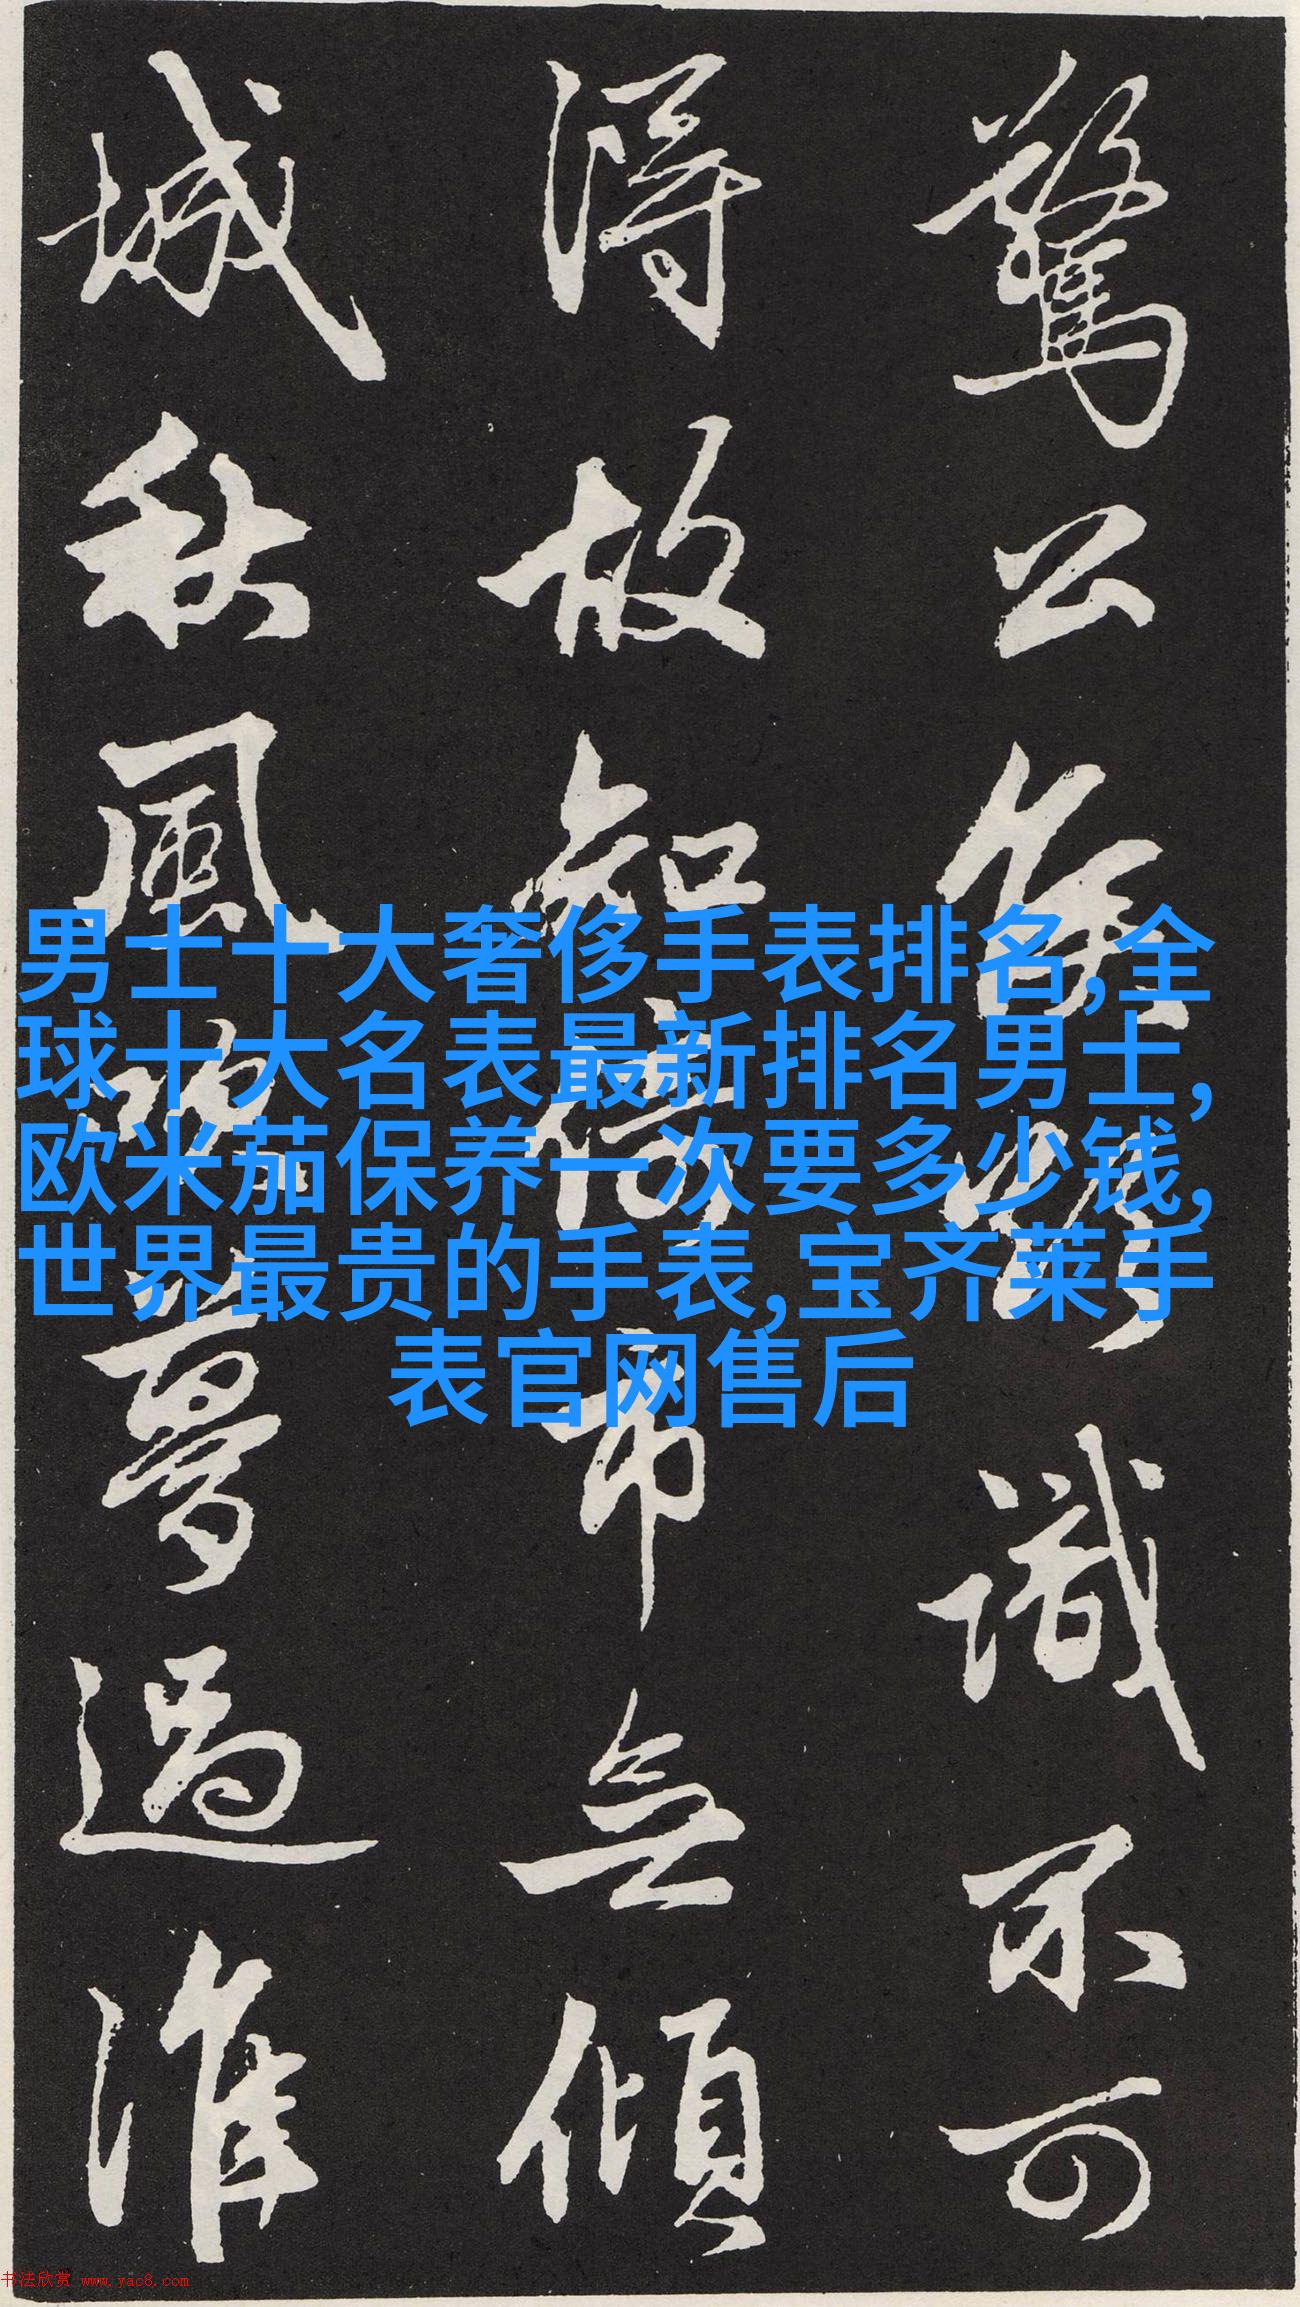 驚公識不可
得故知倚市無傾
城秋風夢過淮
男士十大奢侈手表排名,全
球十大名表最新排名男士,
欧米茄保养一次要多少钱,
世界最贵的手表,宝齐莱手
表官网售后
书法欣赏 www.yac8.com